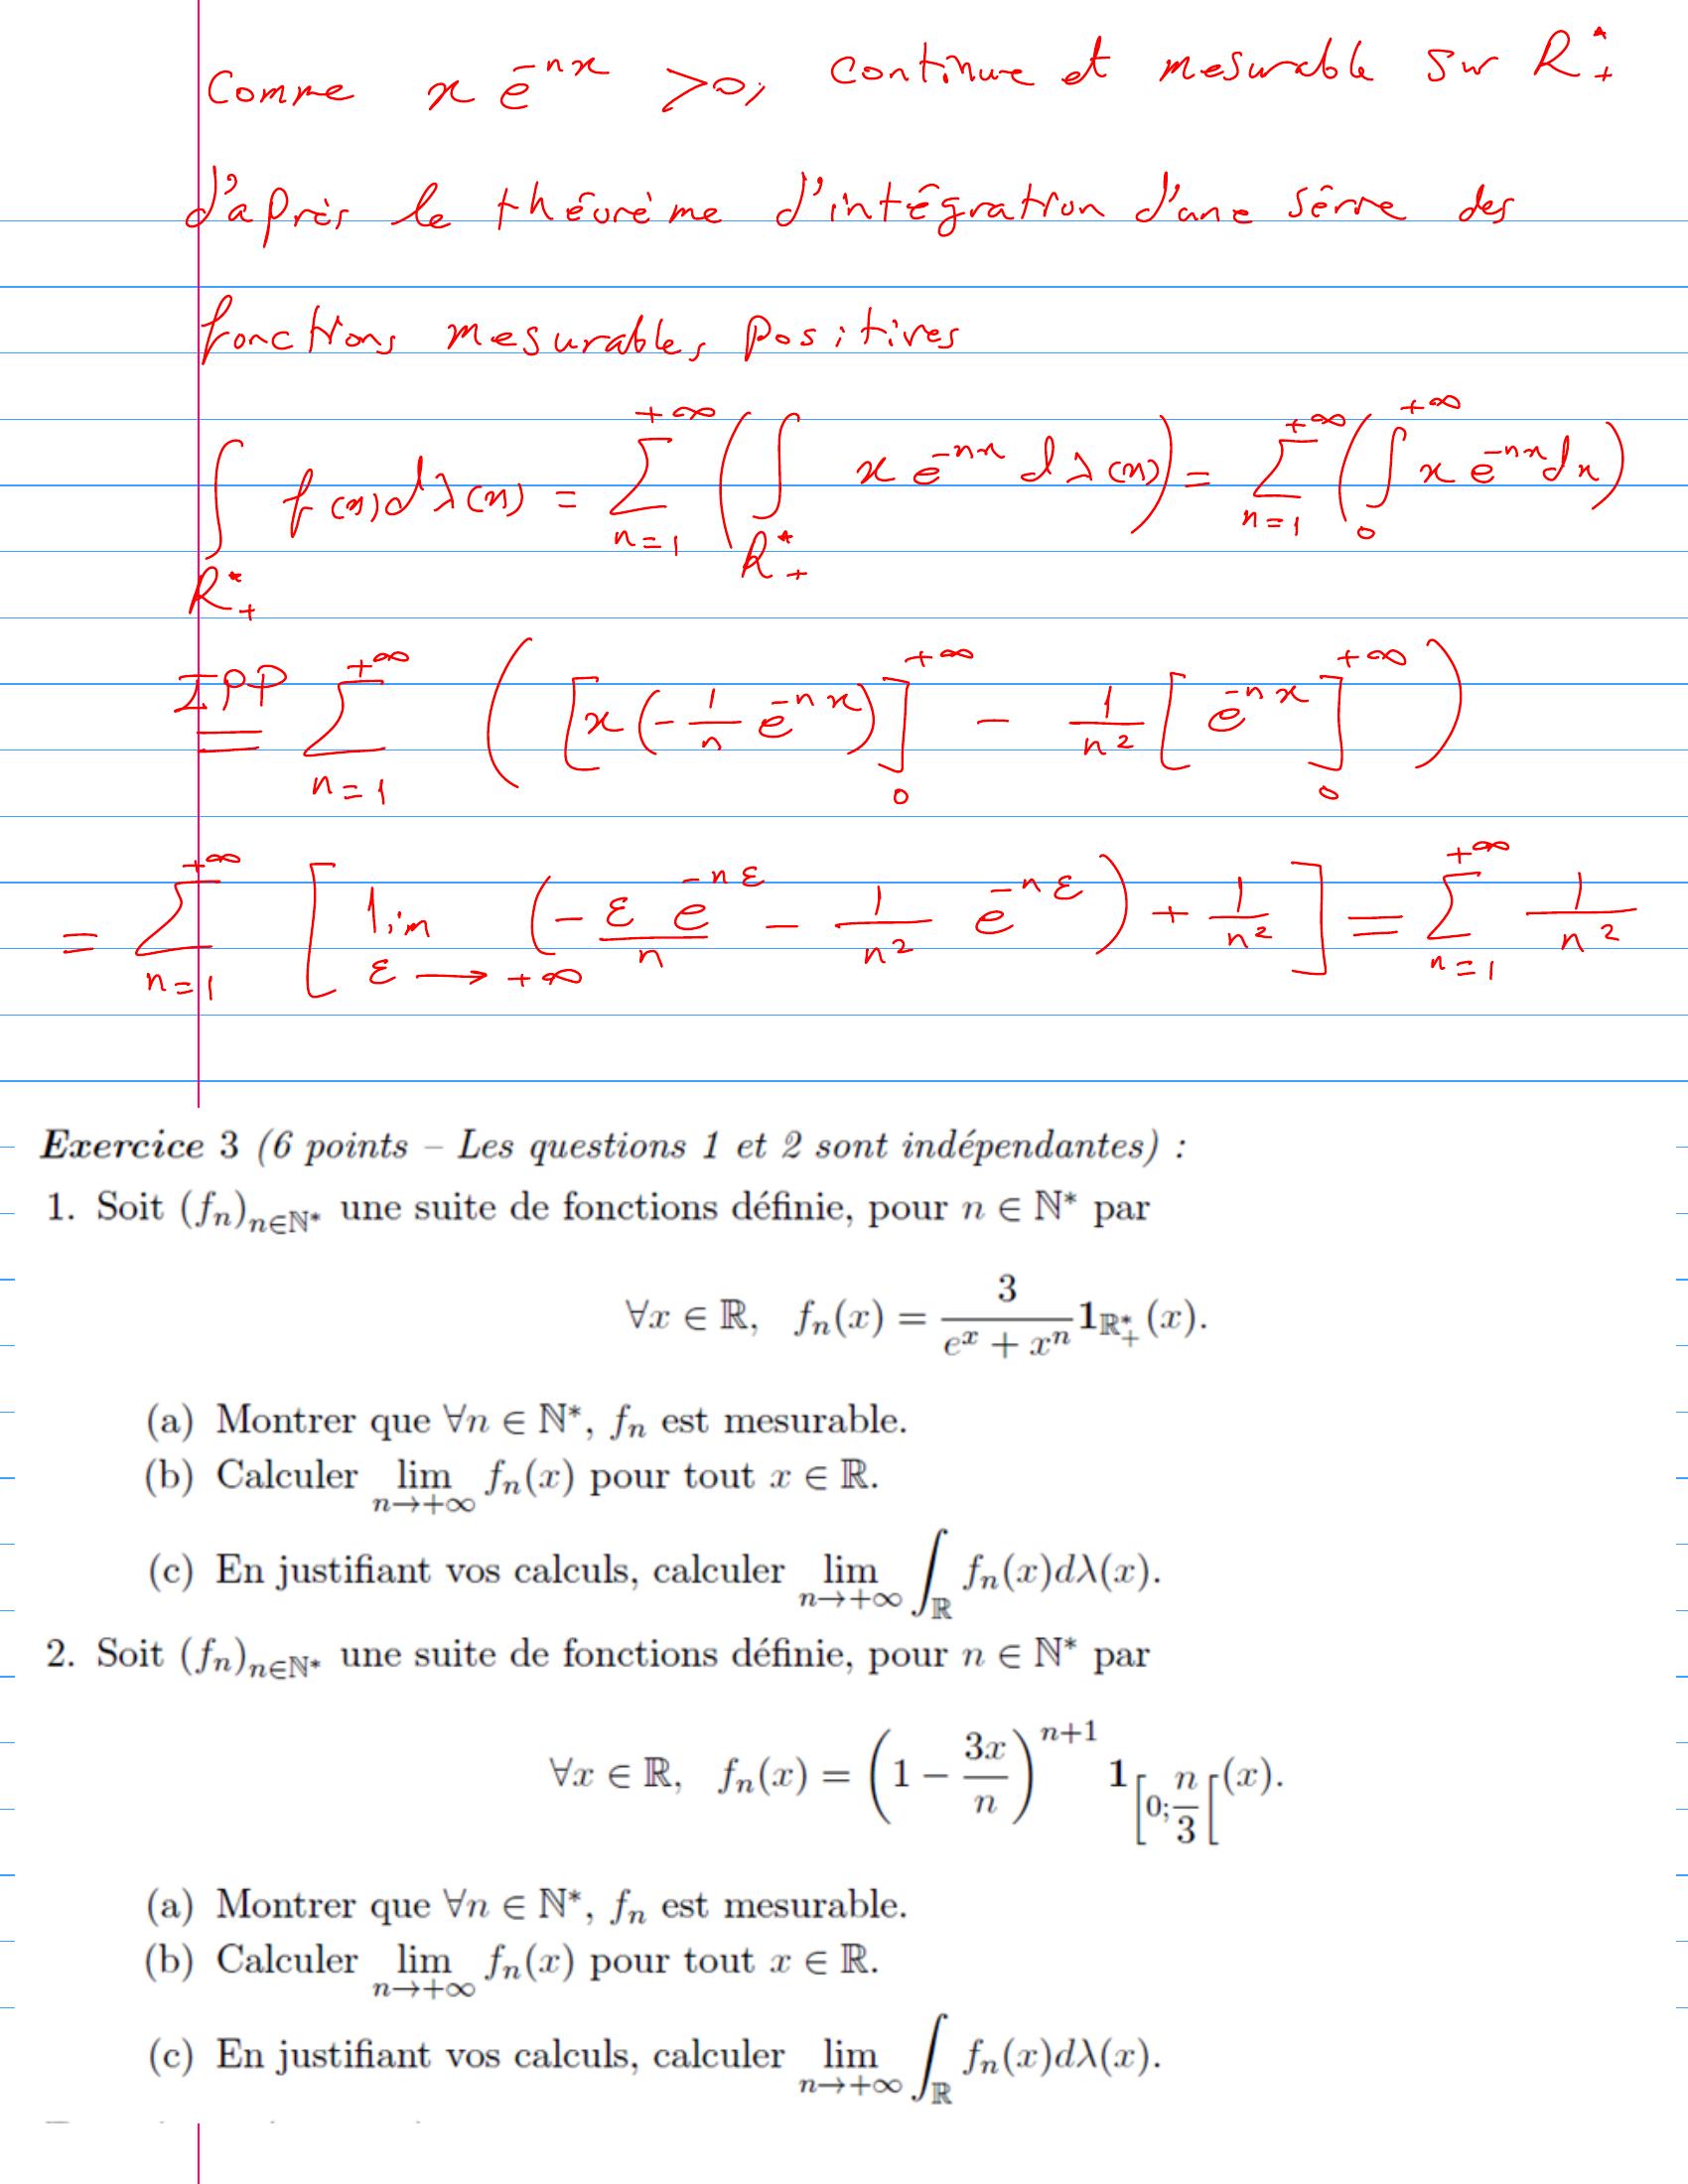 Comme x e^{-nx} >0, continue et mesurable sur R^*_+
d'après le théorème d'intégration d'une série des
fonctions mesurables positives
∫_{R^*_+} f(x)dλ(x) = ∑_{n=1}^{+∞} (∫_{R^*_+} x e^{-nx} dλ(x)) = ∑_{n=1}^{+∞} (∫_0^{+∞} x e^{-nx} dx)
IPP = ∑_{n=1}^{+∞} ([x(-1/n e^{-nx})]_0^{+∞} - 1/n² [e^{-nx}]_0^{+∞})
= ∑_{n=1}^{+∞} [lim_{ε → +∞} (-ε e^{-nε}/n - 1/n² e^{-nε}) + 1/n²] = ∑_{n=1}^{+∞} 1/n²
Exercice 3 (6 points – Les questions 1 et 2 sont indépendantes) :
1. Soit (f_n)_{n∈ℕ*} une suite de fonctions définie, pour n ∈ ℕ* par
∀x ∈ ℝ, f_n(x) = 3/(e^x + x^n) 1_{ℝ^*_+}(x).
(a) Montrer que ∀n ∈ ℕ*, f_n est mesurable.
(b) Calculer lim_{n→+∞} f_n(x) pour tout x ∈ ℝ.
(c) En justifiant vos calculs, calculer lim_{n→+∞} ∫_ℝ f_n(x)dλ(x).
2. Soit (f_n)_{n∈ℕ*} une suite de fonctions définie, pour n ∈ ℕ* par
∀x ∈ ℝ, f_n(x) = (1 − 3x/n)^{n+1} 1_{[0; n/3[}(x).
(a) Montrer que ∀n ∈ ℕ*, f_n est mesurable.
(b) Calculer lim_{n→+∞} f_n(x) pour tout x ∈ ℝ.
(c) En justifiant vos calculs, calculer lim_{n→+∞} ∫_ℝ f_n(x)dλ(x).